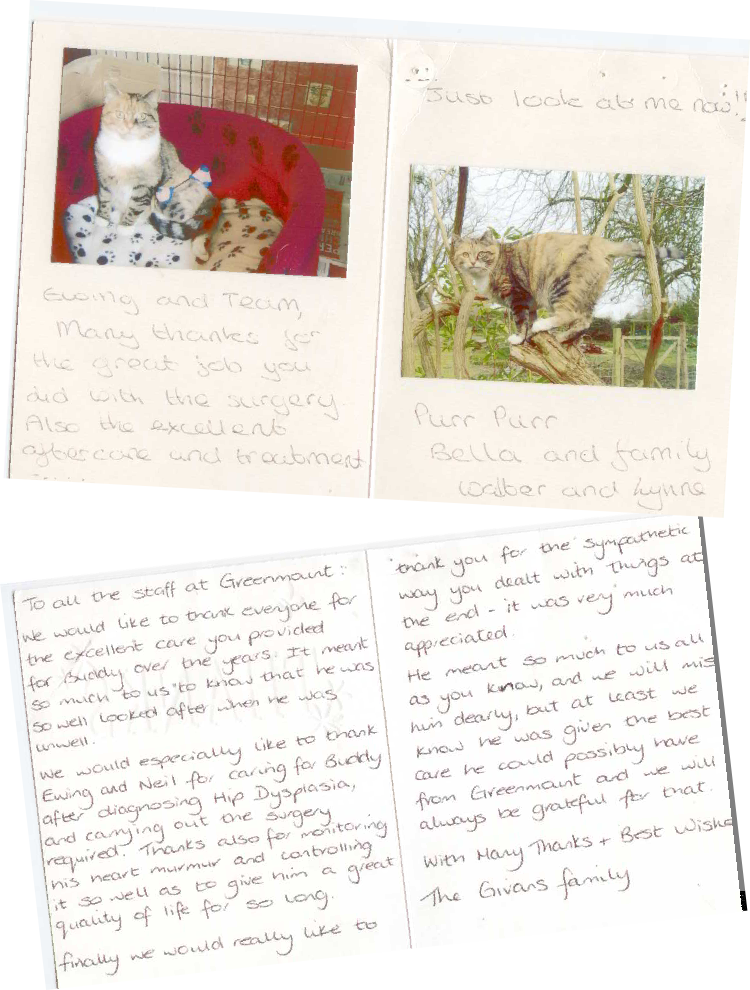 Ewing and Team,
Many thanks for
the great job you
did with the surgery.
Also the excellent
aftercare and treatment
.....
Just look at me now!!
Purr Purr
Bella and family
Walter and Lynne
To all the staff at Greenmount:
We would like to thank everyone for
the excellent care you provided
for Buddy over the years. It meant
so much to us to know that he was
so well looked after when he was
unwell.
We would especially like to thank
Ewing and Neil for caring for Buddy
after diagnosing Hip Dysplasia,
and carrying out the surgery
required. Thanks also for monitoring
his heart murmur and controlling
it so well as to give him a great
quality of life for so long.
finally we would really like to
thank you for the sympathetic
way you dealt with things at
the end - it was very much
appreciated.
He meant so much to us all
as you know, and we will mis
him dearly, but at least we
know he was given the best
care he could possibly have
from Greenmount and we will
always be grateful for that.
With Many Thanks + Best Wishe
The Givans family